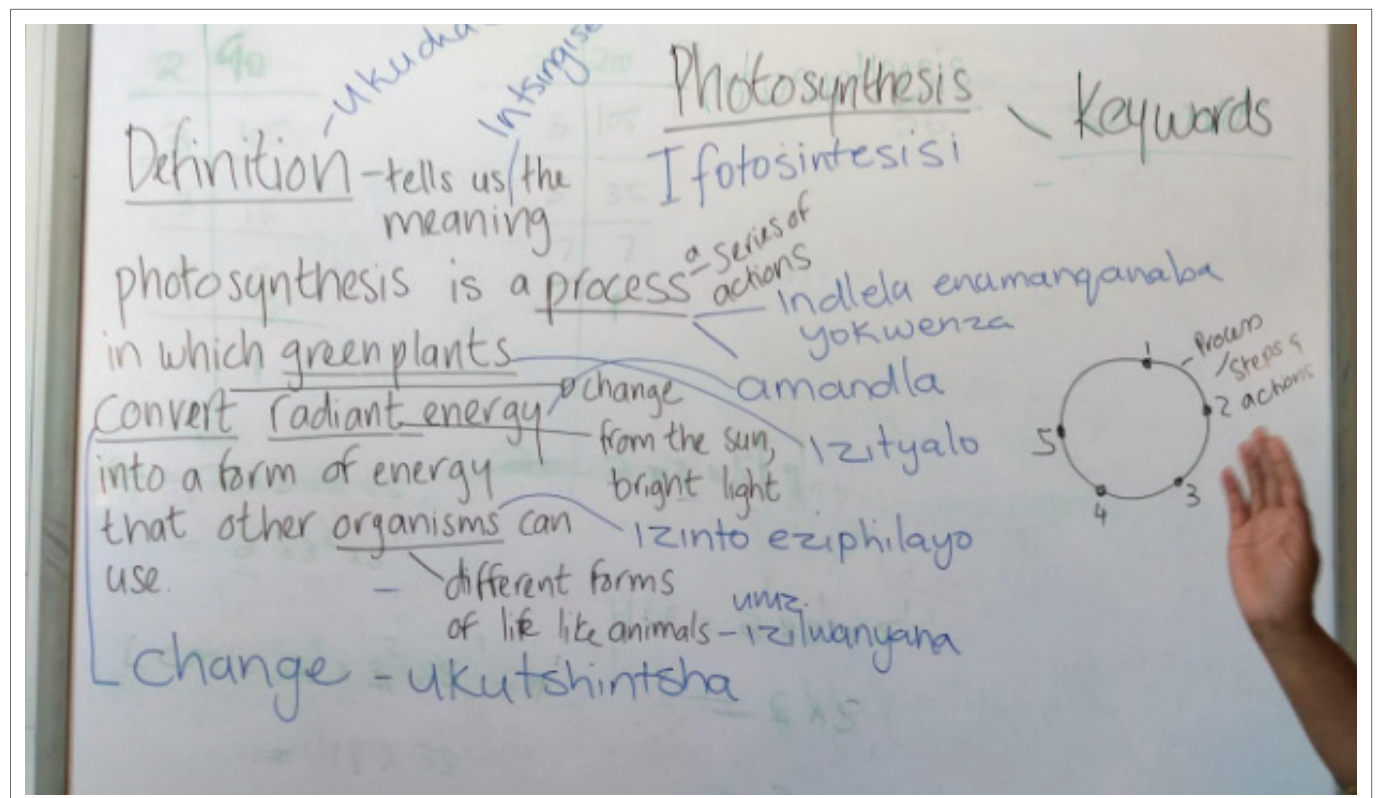 Photosynthesis
Keywords
Ifotosintesisi
Definition - tells us the
meaning
photosynthesis is a process
a series of
actions
Indlela enamanqanaba
yokwenza
in which green plants
amandla
convert radiant energy
change
from the sun,
bright light
Izityalo
into a form of energy
that other organisms can
use.
Izinto eziphilayo
different forms
of life like animals - izilwanyana
umz.
Change - ukutshintsha
Process
/steps &
actions
1
2
3
4
5